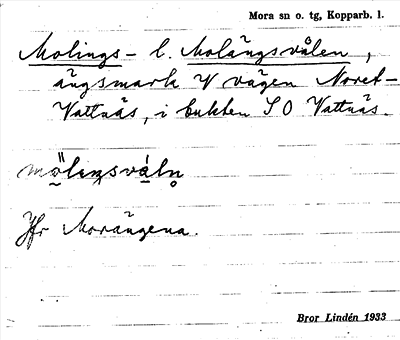 Mora sn o. tg, Kopparb. l.
Molings- l. Molängsvålen,
ängsmark V vägen Noret-
Vattnäs, i bukten S O Vattnäs.
Jfr Morängena.
Bror Lindén 1933